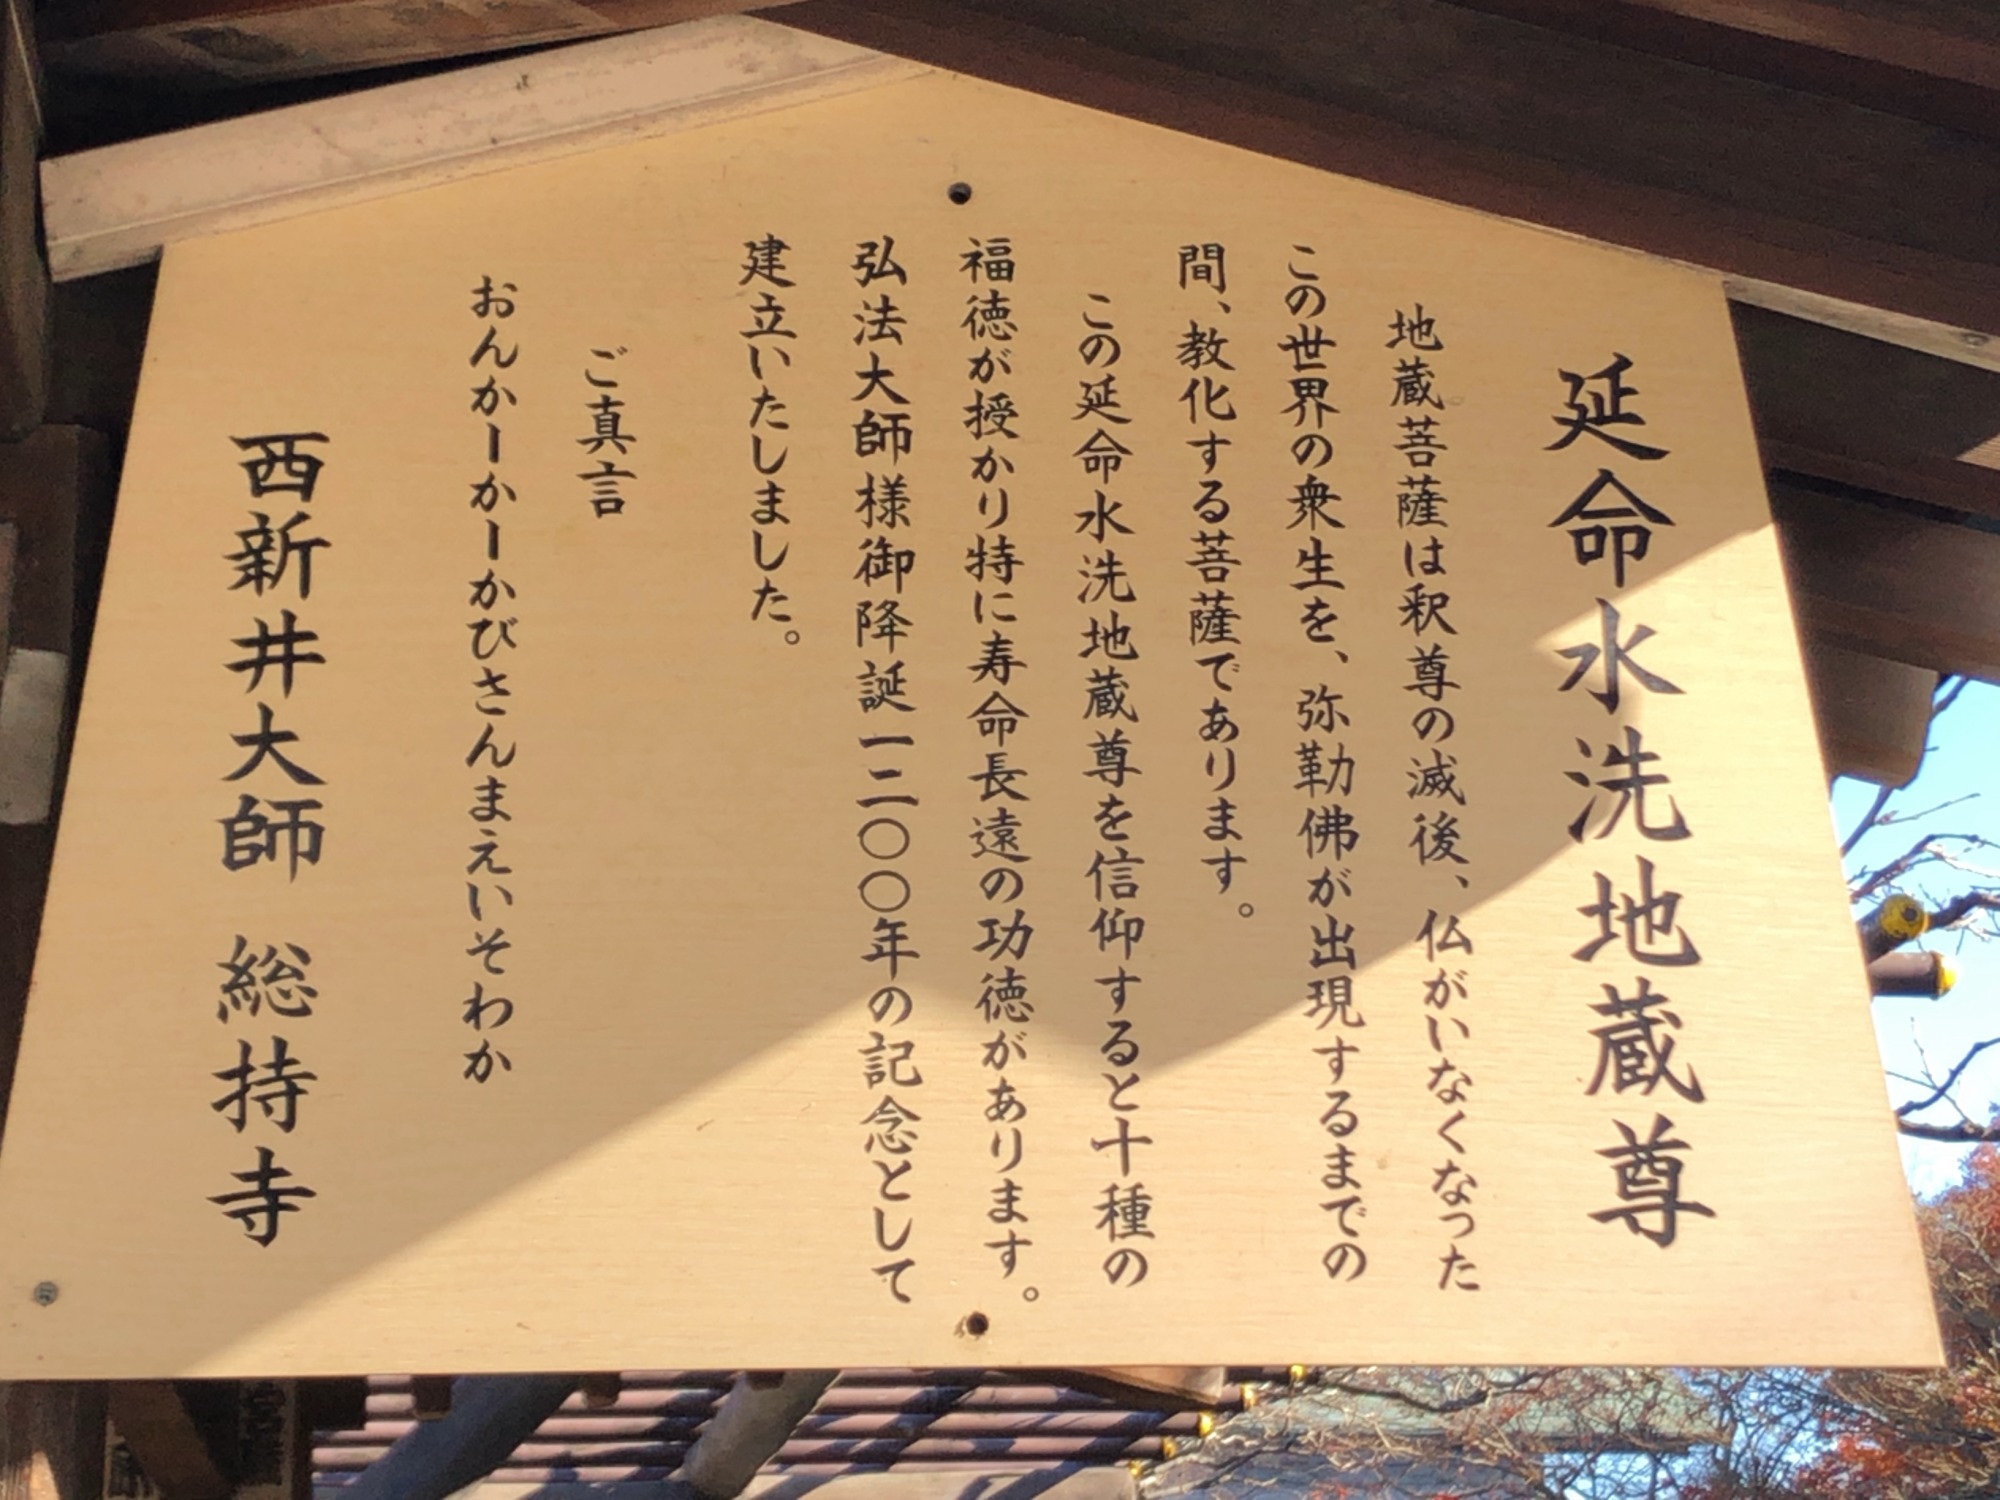 延命水洗地蔵尊
地蔵菩薩は釈尊の滅後、仏がいなくなった
この世界の衆生を、弥勒佛が出現するまでの
間、教化する菩薩であります。
この延命水洗地蔵尊を信仰すると十種の
福徳が授かり特に寿命長遠の功徳があります。
弘法大師様御降誕一二〇〇年の記念として
建立いたしました。
ご真言
おんかーかーかびさんまえいそわか
西新井大師 総持寺